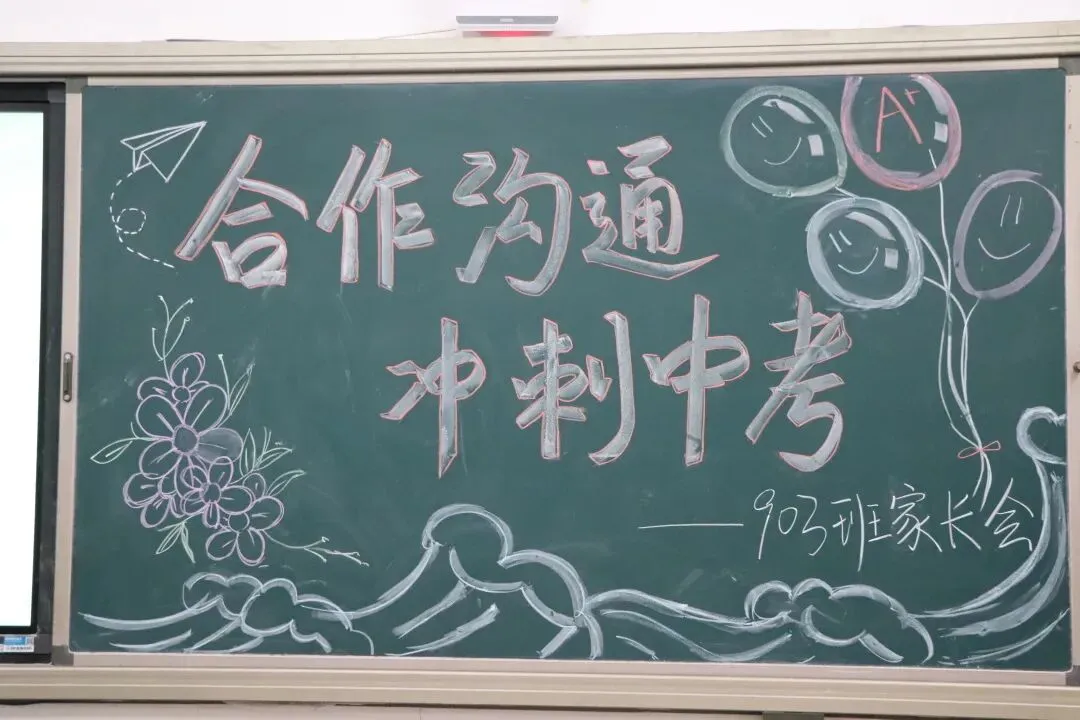 A+
合作沟通
冲刺中考
——903班家长会